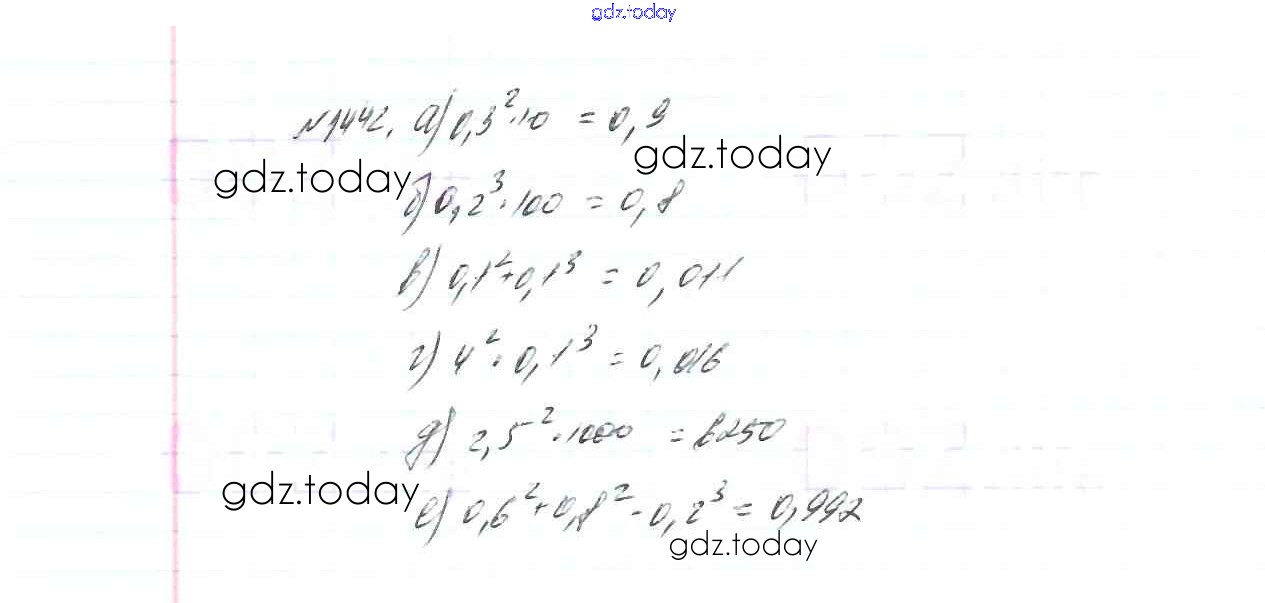 gdz.today
№1442. а) 0,3²·10 = 0,9
gdz.today
gdz.today
б) 0,2³·100 = 0,8
в) 0,1²+0,1³ = 0,011
г) 4²·0,1³ = 0,016
д) 2,5²·1000 = 6250
gdz.today
е) 0,6²+0,8²-0,2³ = 0,992
gdz.today